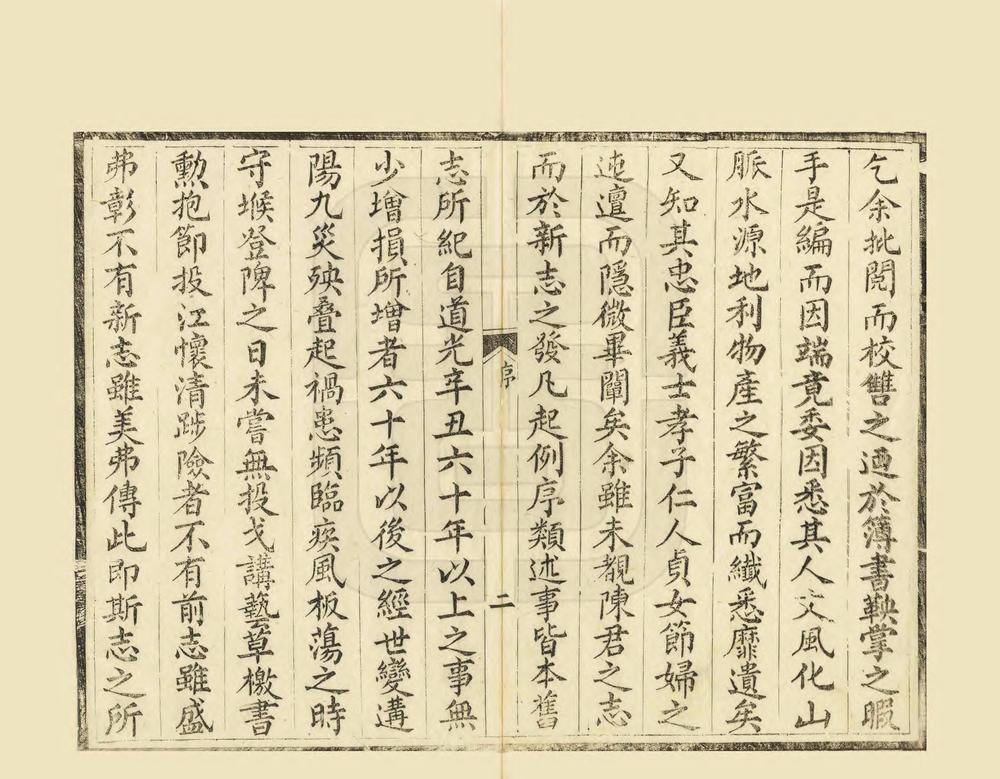 乞余批閱而校讐之迺於簿書鞅掌之暇
手是編而因端竟委因悉其人文風化山
脈水源地利物產之繁富而纖悉靡遺矣
又知其忠臣義士孝子仁人貞女節婦之
迍邅而隱微畢闡矣余雖未覩陳君之志
而於新志之發凡起例序類述事皆本舊
序
二
志所紀自道光辛丑六十年以上之事無
少增損所增者六十年以後之經世變遘
陽九災殃疊起禍患頻臨疾風板蕩之時
守堠登陴之日未嘗無投戈講藝草檄書
勲抱節投江懷清跡險者不有前志雖盛
弗彰不有新志雖美弗傳此即斯志之所